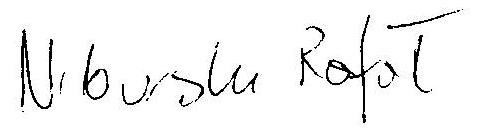 Niburski Rafał